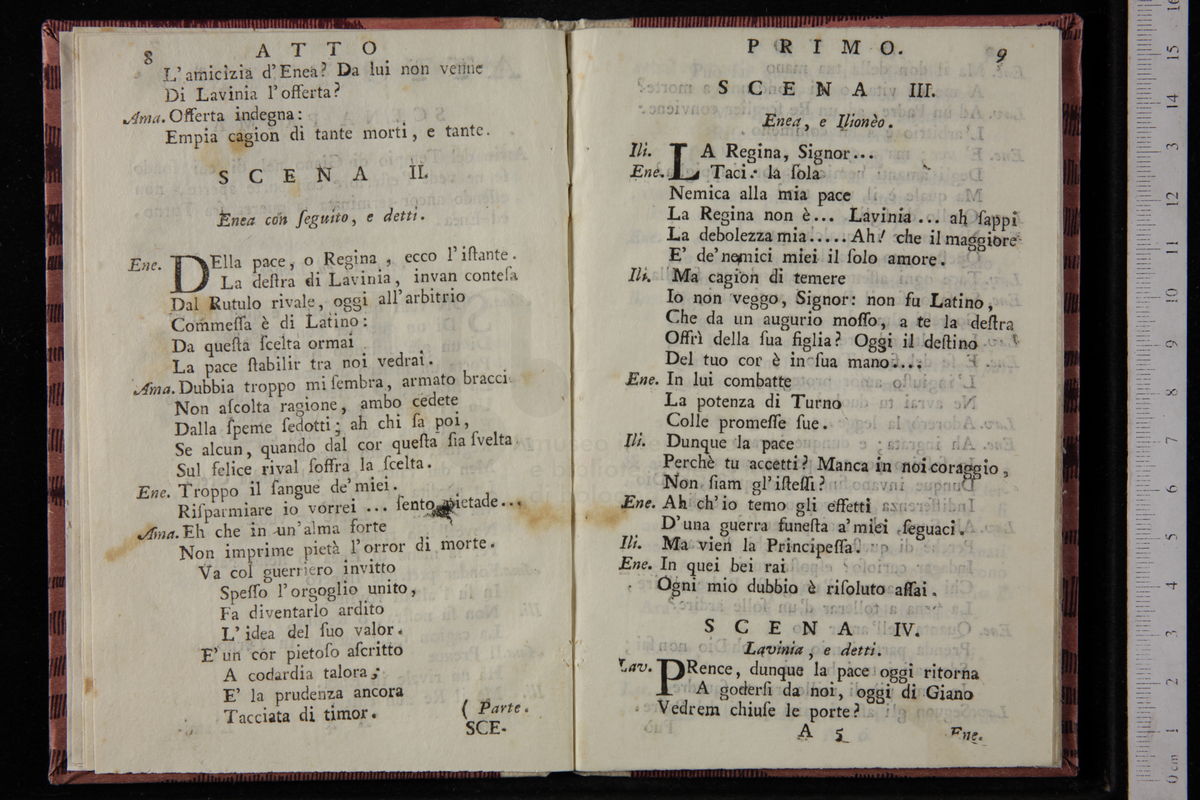 8 A T T O
L'amicizia d'Enea? Da lui non venne
Di Lavinia l'offerta?
Ama. Offerta indegna:
Empia cagion di tante morti, e tante.
S C E N A II.
Enea con ſeguito, e detti.
Ene. DElla pace, o Regina, ecco l'iſtante.
La deſtra di Lavinia, invan conteſa
Dal Rutulo rivale, oggi all'arbitrio
Commeſſa è di Latino:
Da queſta ſcelta ormai
La pace ſtabilir tra noi vedrai.
Ama. Dubbia troppo mi ſembra, armato bracci
Non aſcolta ragione, ambo cedete
Dalla ſpeme ſedotti; ah chi ſa poi,
Se alcun, quando dal cor queſta ſia ſvelta.
Sul felice rival ſoffra la ſcelta.
Ene. Troppo il ſangue de' miei.
Riſparmiare io vorrei ... ſento pietade...
Ama. Eh che in un'alma forte
Non imprime pietà l'orror di morte.
Va col guerriero invitto
Speſſo l'orgoglio unito,
Fa diventarlo ardito
L'idea del ſuo valor.
E' un cor pietoſo aſcritto
A codardia talora;
E' la prudenza ancora
Tacciata di timor. ( Parte.
SCE-
P R I M O. 9
S C E N A III.
Enea, e Ilionèo.
Ili. LA Regina, Signor...
Ene. Taci: la ſola
Nemica alla mia pace
La Regina non è... Lavinia ... ah ſappi
La debolezza mia..... Ah! che il maggiore
E' de' nemici miei il ſolo amore.
Ili. Ma cagion di temere
Io non veggo, Signor: non fu Latino,
Che da un augurio moſſo, a te la deſtra
Offrì della ſua figlia? Oggi il deſtino
Del tuo cor è in ſua mano....
Ene. In lui combatte
La potenza di Turno
Colle promeſſe ſue.
Ili. Dunque la pace
Perchè tu accetti? Manca in noi coraggio,
Non ſiam gl'iſteſſi?
Ene. Ah ch'io temo gli effetti
D'una guerra funeſta a' miei ſeguaci.
Ili. Ma vien la Principeſſa.
Ene. In quei bei rai
Ogni mio dubbio è riſoluto aſſai.
S C E N A IV.
Lavinia, e detti.
Lav. PRence, dunque la pace oggi ritorna
A goderſi da noi, oggi di Giano
Vedrem chiuſe le porte?
A 5 Ene.